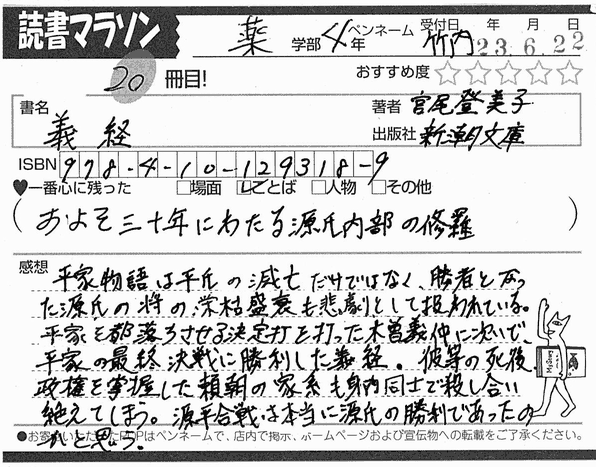 読書マラソン
薬 学部 4年 ペンネーム 竹内 受付日 年 月 日 23.6.22
20 冊目!
おすすめ度 ☆☆☆☆☆
書名 義経
著者 宮尾登美子
出版社 新潮文庫
ISBN 978-4-10-129318-9
♥一番心に残った □場面 ☑ことば □人物 □その他
(およそ三十年にわたる源氏内部の修羅)
感想
平家物語は平氏の滅亡だけではなく、勝者となっ
た源氏の将の栄枯盛衰も悲劇として扱われている。
平家を都落ちさせる決定打を打った木曽義仲に次いで、
平家の最終決戦に勝利した義経。彼等の死後、
政権を掌握した頼朝の家系も身内同士で殺し合い
絶えてしまう。源平合戦は本当に源氏の勝利であったの
かと思う。
●お寄せいただいたPOPはペンネームで、店内で掲示、ホームページおよび宣伝物への転載をご了承ください。